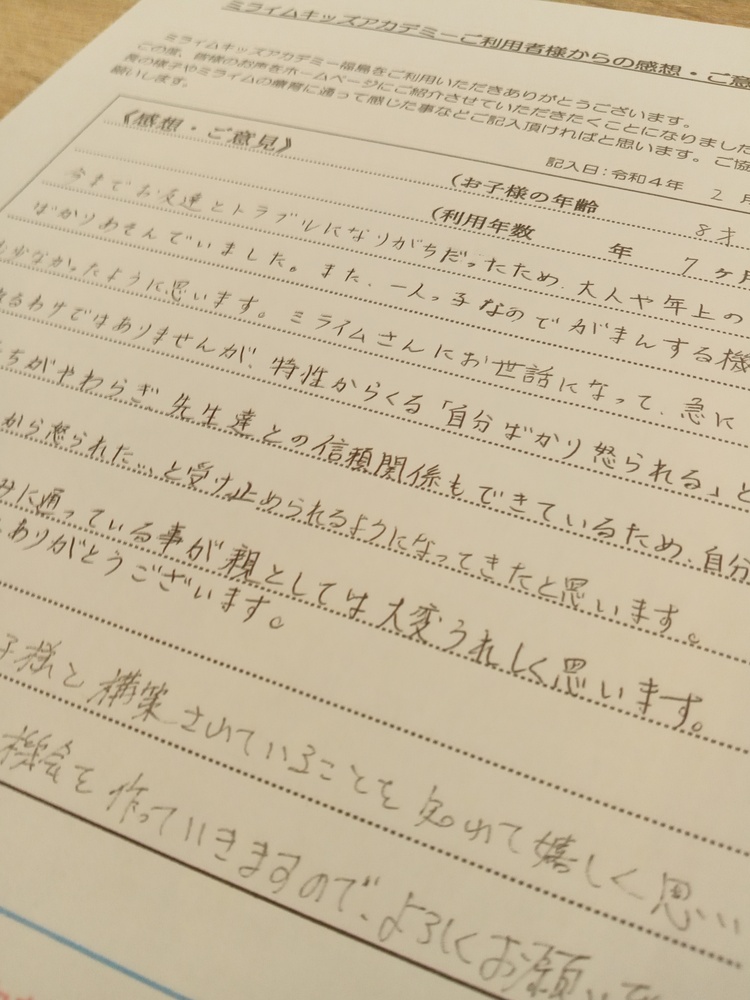 ミライムキッズアカデミーご利用者様からの感想・ご意
ミライムキッズアカデミー福島をご利用いただきありがとうございます。
この度、皆様のお声をホームページにご紹介させていただきたくことになりました
の様子やミライムの療育に通って感じた事などご記入頂ければと思います。ご協
願いします。
記入日：令和４年 2 月
《感想・ご意見》
（お子様の年齢 8才
（利用年数 年 7 ヶ月
今までお友達とトラブルになりがちだったため、大人や年上の
ばかりあそんでいました。また、一人っ子なのでがまんする機
少なかったように思います。ミライムさんにお世話になって、急に
るわけではありませんが、特性からくる「自分ばかり怒られる」と
ちがやわらぎ、先生達との信頼関係もできているため、自分
から怒られた…と受け止められるようになってきたと思います。
みに通っている事が親としては大変うれしく思います。
ありがとうございます。
子様と構築されていることを知れて嬉しく思い
機会を作っていきますので、よろしくお願い